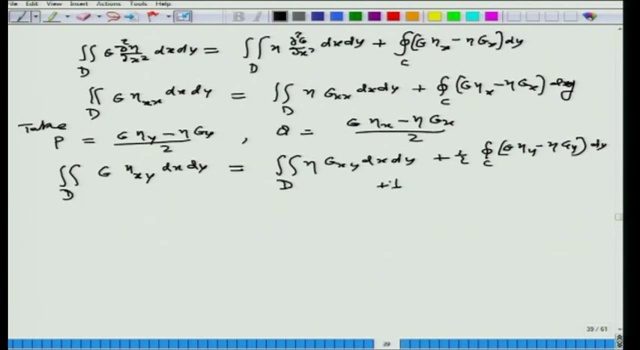 File Edit View Insert Actions Tools Help
∬_D G ∂²η/∂x² dxdy = ∬_D η ∂²G/∂x² dxdy + ∮_C (Gη_x − ηG_x) dy
∬_D G η_xx dxdy = ∬_D η G_xx dxdy + ∮_C (Gη_x − ηG_x) dy
Take P = (Gη_y − ηG_y)/2 , Q = (Gη_x − ηG_x)/2
∬_D G η_xy dxdy = ∬_D η G_xy dxdy + ½ ∮_C (Gη_y − ηG_y) dy
+1